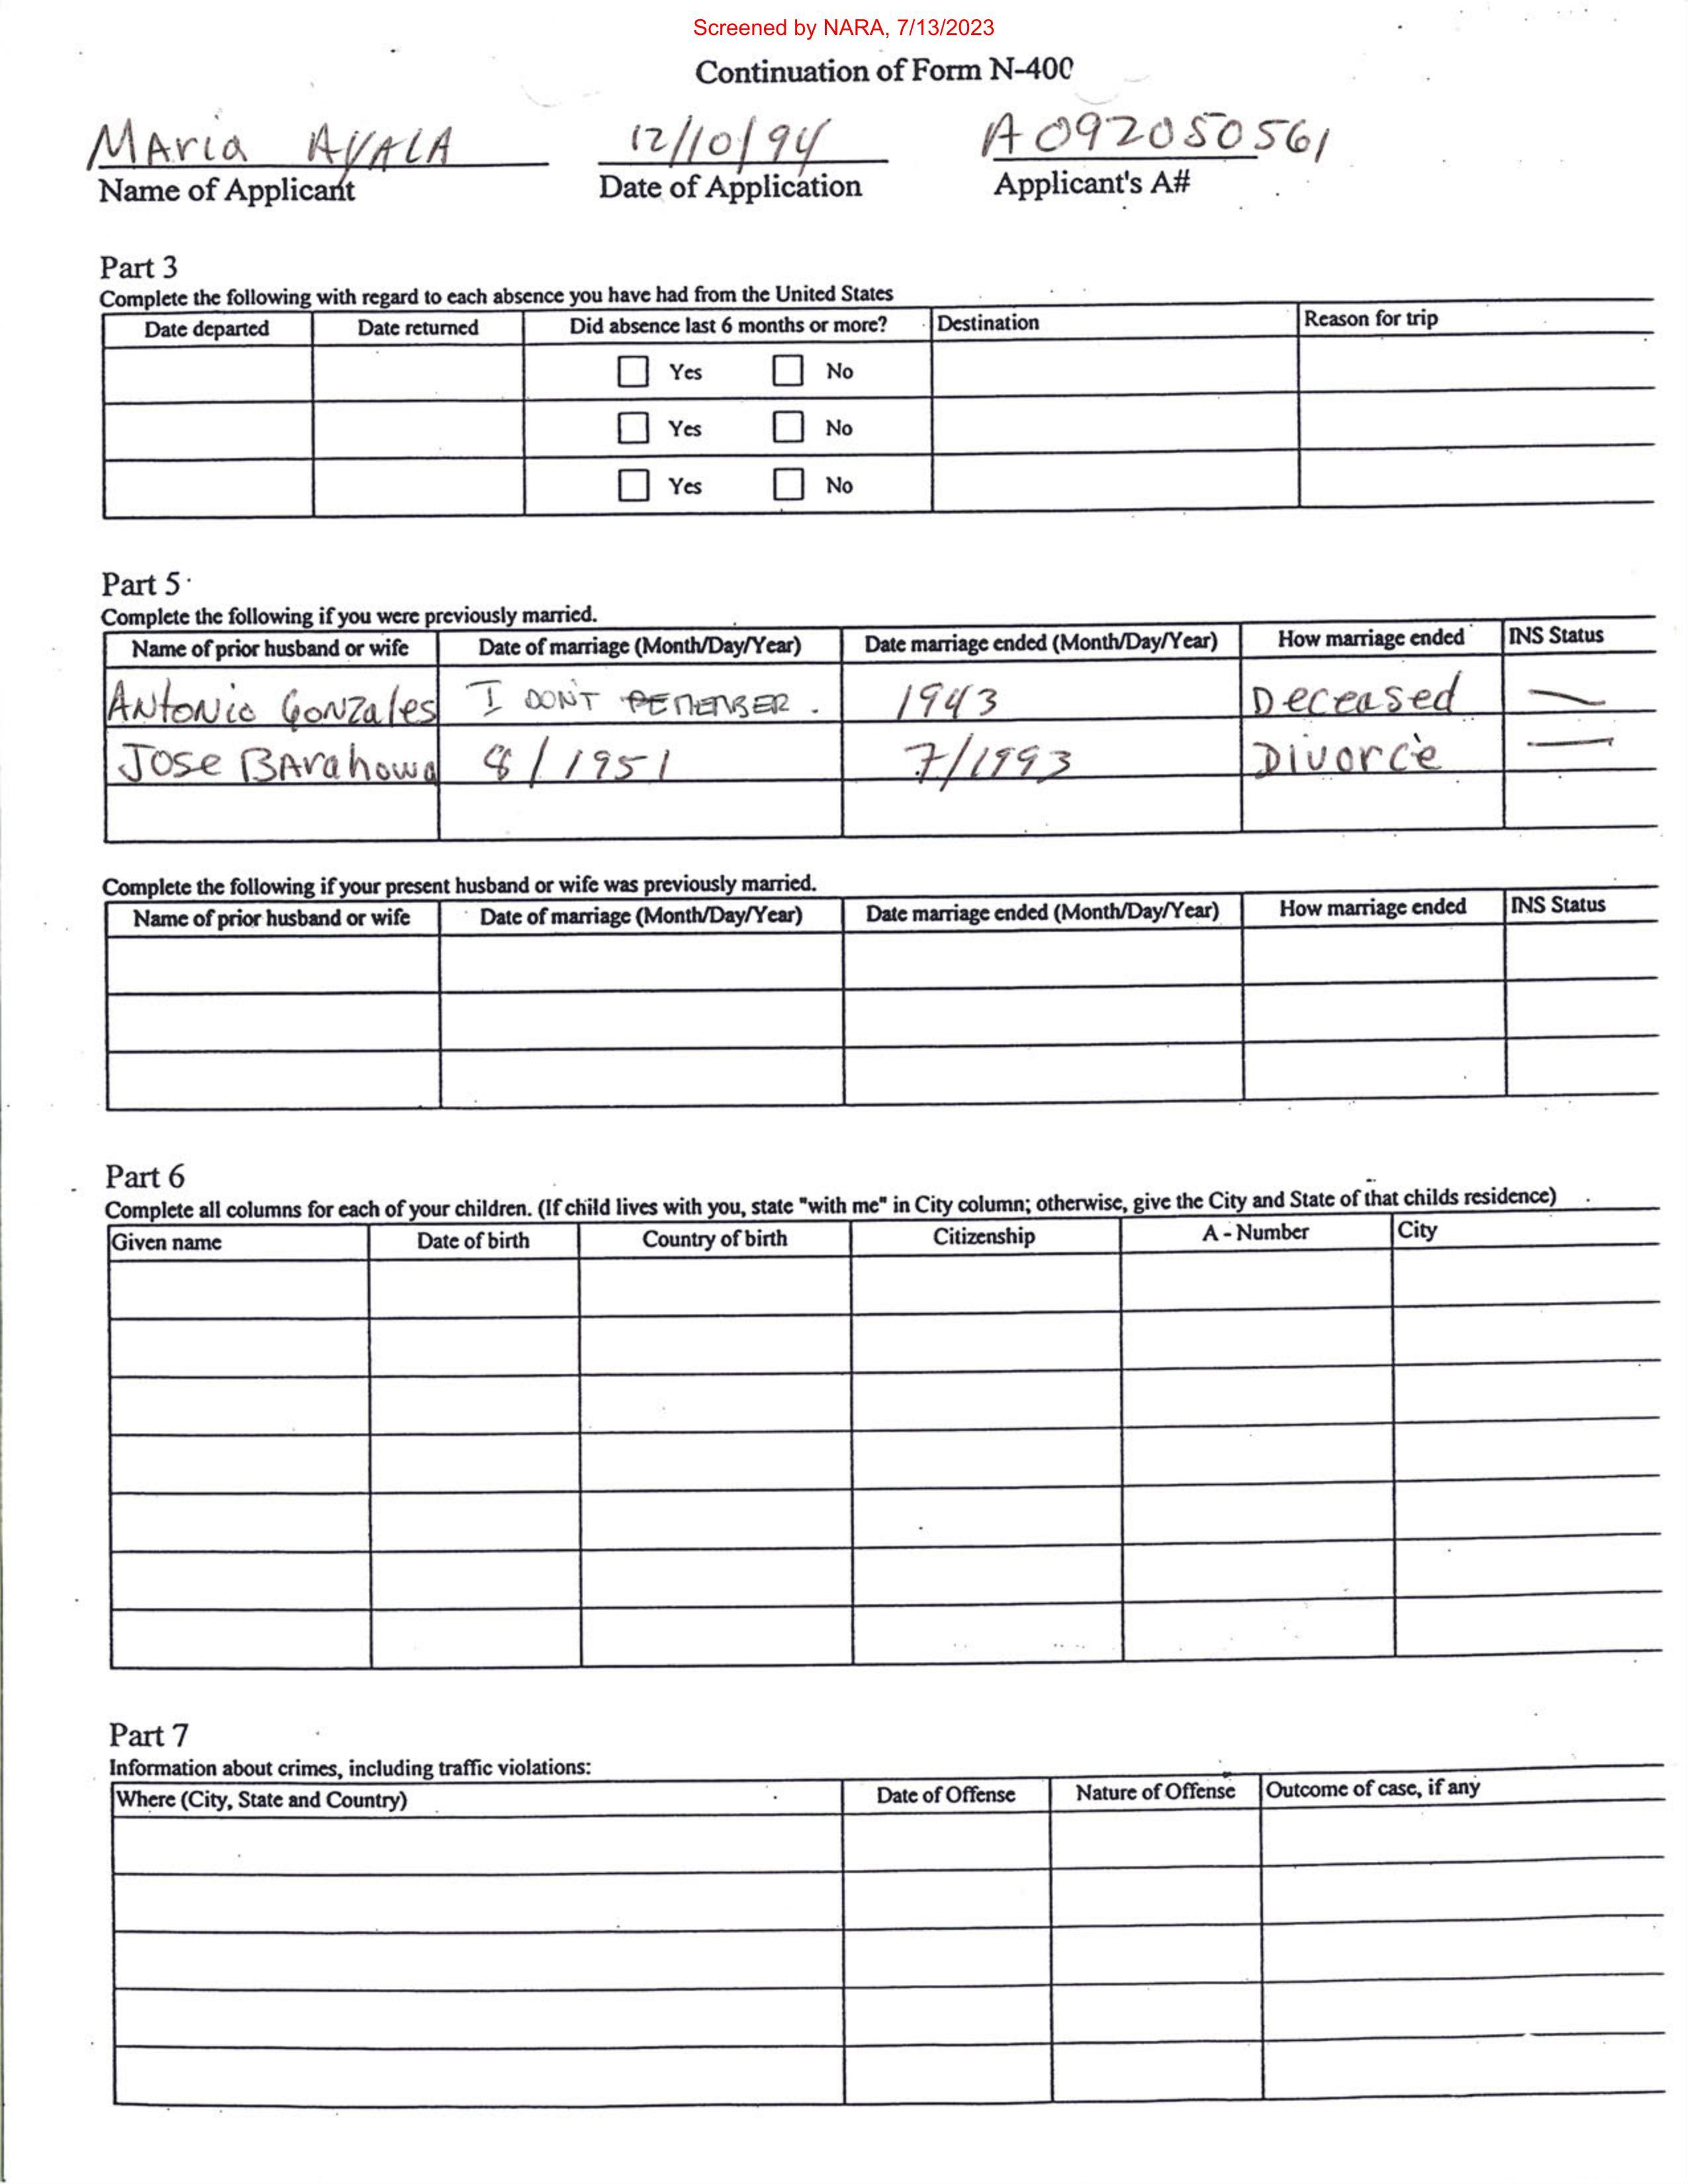 Screened by NARA, 7/13/2023
Continuation of Form N-400
Maria AYALA 12/10/94 A092050561
Name of Applicant Date of Application Applicant's A#
Part 3
Complete the following with regard to each absence you have had from the United States
Date departed Date returned Did absence last 6 months or more? Destination Reason for trip
Yes No
Yes No
Yes No
Part 5
Complete the following if you were previously married.
Name of prior husband or wife Date of marriage (Month/Day/Year) Date marriage ended (Month/Day/Year) How marriage ended INS Status
Antonio Gonzales I DON'T REMEMBER. 1943 Deceased —
Jose Barahowa 8/1951 7/1993 Divorce —
Complete the following if your present husband or wife was previously married.
Name of prior husband or wife Date of marriage (Month/Day/Year) Date marriage ended (Month/Day/Year) How marriage ended INS Status
Part 6
Complete all columns for each of your children. (If child lives with you, state "with me" in City column; otherwise, give the City and State of that childs residence)
Given name Date of birth Country of birth Citizenship A - Number City
Part 7
Information about crimes, including traffic violations:
Where (City, State and Country) Date of Offense Nature of Offense Outcome of case, if any